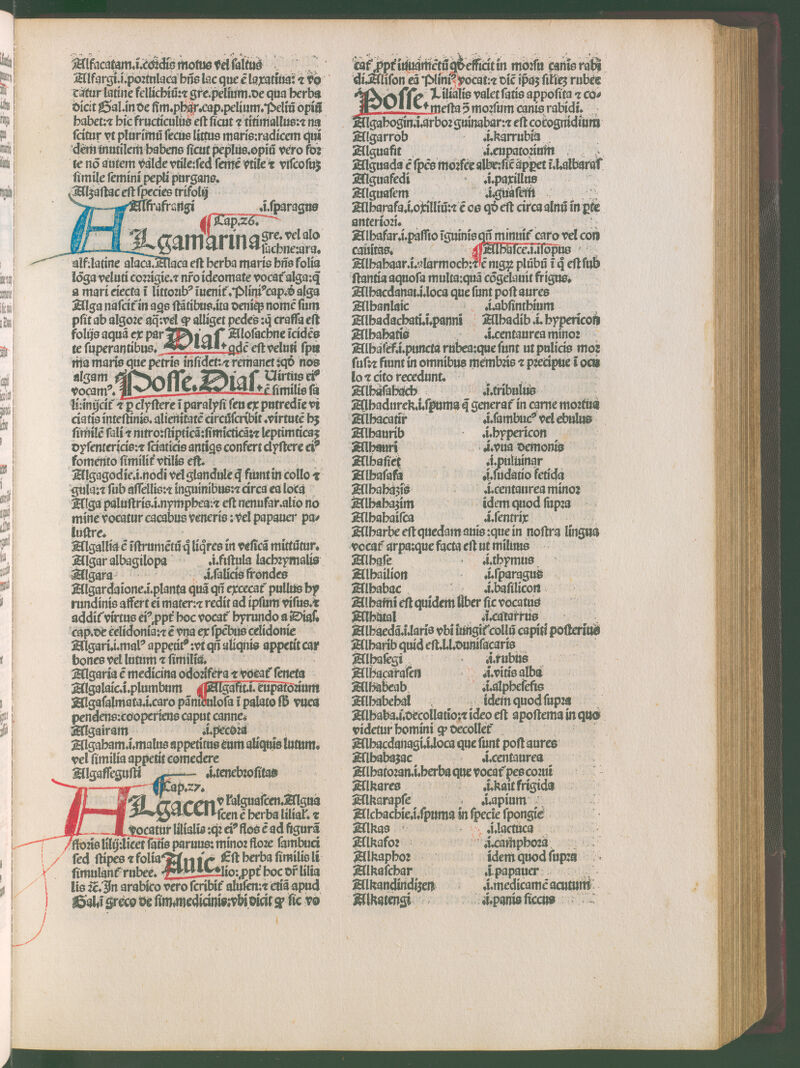 Alfacatam.i.cordis motus vel saltus
Alfargi.i.portulaca hñs lac que ē laxatiua: ⁊ vo
catur latine fellichiũ:⁊ gre.pelium.de qua herba
dicit Gal.in de sim.phar.cap.pelium. Peliũ opiũ
habet:⁊ hic fructiculus est sicut ⁊ titimallus:⁊ na
scitur vt plurimũ secus littus maris:radicem qui
dem inutilem habens sicut peplus.opiũ vero for
te nõ autem valde vtile:sed semẽ vtile ⁊ viscosuʒ
simile semini pepli purgans.
Alzastac est species trifolij
Alfrafrangi .i.sparagus
Cap.26.
ALgamarina gre. vel alo
sachne:ara.
alf:latine alaca.Alaca est herba maris hñs folia
lõga veluti corrigie.⁊ nr̃o ideomate vocat̃ alga:q̃
a mari eiecta ĩ littorib᾽ ĩuenit̃. Plini᾽ cap.ð alga
Alga nascit̃ in aq̃s stãtibus.ita deniqʒ nomẽ sum
psit ab algore aq̃:vel ꝙ alliget pedes:q̃ crassa est
folijs aquã ex par Dias. Alosachne ĩcidẽs
te superantibus. qdẽ est veluti spu
ma maris que petris insidet:⁊ remanet:qð nos
algam Posse.Dias. Uirtus ei᾽
vocam᾽. ē similis sa
li:inijcit̃ ⁊ ꝑ clystere ĩ paralysi seu ex putredie vi
ciatis intestinis.alienitatẽ circũscribit.virtutẽ hʒ
similẽ sali ⁊ nitro:stipticã:simicticã:⁊ leptimticaʒ
dysentericis:⁊ sciaticis antiq̃s confert clystere ei᾽
fomento similit̃ vtilis est.
Algagodie.i.nodi vel glandule q̃ fiunt in collo ⁊
gula:⁊ sub assellis:⁊ inguinibus:⁊ circa ea loca
Alga palustris.i.nymphea:⁊ est nenufar.alio no
mine vocatur cacabus veneris:vel papauer pa-
lustre.
Algallia ē ĩstrumẽtũ q̃ liq̃res in vesicã mittũtur.
Algar albagilopa .i.fistula lachrymalis
Algara .i.salicis frondes
Algardaione.i.planta quã qñ excecat̃ pullus hy
rundinis affert ei mater:⁊ redit ad ipsum visus.⁊
addit̃ virtus ei᾽.ppt̃ hoc vocat̃ hyrundo a Dias.
cap.de celidonia:⁊ ē vna ex spẽbus celidonie
Algari.i.mal᾽ appetit᾽:vt qñ aliquis appetit car
bones vel lutum ⁊ similia.
Algaria ē medicina odorifera ⁊ vocat̃ seneta
Algalaic.i.plumbum Algafit.i. eupatorium
Algasalmata.i.caro pãniculosa ĩ palato sꝫ vuca
pendens:cooperiens caput canne.
Algairam .i.pecora
Algaham.i.malus appetitus eum aliquis lutum.
vel similia appetit comedere
Algassegusti .i.tenebrositas
Cap.27.
ALgacen vr̃ alguascen.Algua
scen ē herba lilial̃. ⁊
vocatur lilialis:qꝛ ei᾽ flos ē ad figurã
floris lilij:licet satis paruus: minor flore sambuci
sed stipes ⁊ folia Auic. Est herba similis li
simulant̃ rubee. lio:ꝓpt̃ hoc dr̃ lilia
lis ⁊c̃. In arabico vero scribit̃ alusen:⁊ etiã apud
Gal.ĩ greco de sim.medicinis:vbi dicit ꝙ sic vo
cat̃ ꝓpt̃ iuuamẽtũ qð efficit in morsu canis rabi
di. Alison eã Plini᾽ vocat:⁊ dic̃ ip̃aʒ siliẽʒ rubee
Posse. Lilialis valet satis apposita ⁊ co-
mesta ↄ̃ morsum canis rabidi.
Algahogin.i.arbor guinabar:⁊ est cocognidium
Algarrob .i.karrubia
Alguafit .i.eupatorium
Alguada ē spẽs morfee albe:sic̃ appet ĩ.l.albaras
Alguafedi .i.paxillus
Alguasem .i.guasem
Alharafa.i.oxilliũ:⁊ ē os qð est circa alnũ in ꝑte
anteriori.
Alhafar.i.passio ĩguinis qñ minuit̃ caro vel con
cauitas. Alhasce.i.isopus
Alhahaar.i.alarmoch:⁊ ē nigꝝ plũbũ ĩ q̃ est sub
stantia aquosa multa:quã cõgelauit frigus.
Alhacdanai.i.loca que sunt post aures
Alhanlaic .i.absinthium
Alhadachati.i.panni Alhadib.i. hypericon
Alhahatis .i.centaurea minor
Alhasef.i.puncta rubea:que sunt ut pulicis mor
sus:⁊ fiunt in omnibus membris ⁊ precipue ĩ ocu
lo ⁊ cito recedunt.
Alhasahach .i.tribulus
Alhadurek.i.spuma q̃ generat̃ in carne mortua
Alhacatir .i.sambuc᾽ vel ebulus
Alhaurib .i.hypericon
Alhauri .i.vua demonis
Alhafiet .i.puluinar
Alhasafa .i.sudatio fetida
Alhahazis .i.centaurea minor
Alhahazim idem quod supra
Alhahaisca .i.sentrix
Alharbe est quedam auis:que in nostra lingua
vocat̃ arpa:que facta est ut miluus
Alhase .i.thymus
Alhailion .i.sparagus
Alhabac .i.basilicon
Alhami est quidem liber sic vocatus
Alhatal .i.catarrus
Alhaedã.i.laris vbi iungit̃ collũ capiti posterius
Alharib quid est.l.l.dunisacaris
Alhasegi .i.rubus
Alhacarasen .i.vitis alba
Alhabeab .i.alphesefis
Alhabehal idem quod supra
Alhaba.i.decollatio:⁊ ideo est apostema in quo
videtur homini ꝙ decollet̃
Alhacdanagi.i.loca que sunt post aures
Alhabazac .i.centaurea
Alhatoran.i.herba que vocat̃ pes corui
Alkares .i.kait frigida
Alkarapse .i.apium
Alchachie.i.spuma in specie spongie
Alkas .i.lactuca
Alkafor .i.camphora
Alkaphor idem quod supra
Alkaschar .i.papauer
Alkandindizen .i.medicamẽ acutum
Alkatengi .i.panis siccus